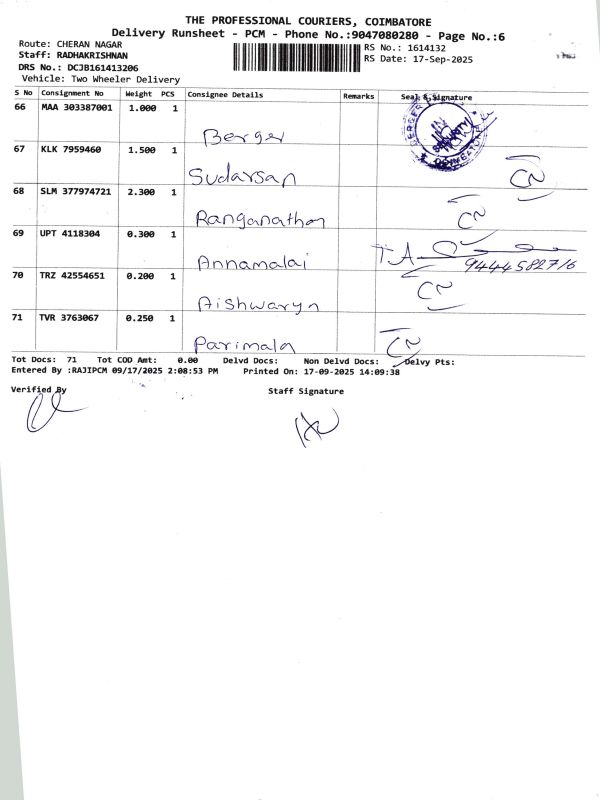 THE PROFESSIONAL COURIERS, COIMBATORE
Delivery Runsheet - PCM - Phone No.:9047080280 - Page No.:6
Route: CHERAN NAGAR
Staff: RADHAKRISHNAN
DRS No.: DCJB161413206
Vehicle: Two Wheeler Delivery
RS No.: 1614132
RS Date: 17-Sep-2025
S No Consignment No Weight PCS Consignee Details Remarks Seal & Signature
66 MAA 303387001 1.000 1 Berger
SECURITY COIMBATORE
67 KLK 7959460 1.500 1 Sudarsan CN
68 SLM 377974721 2.300 1 Ranganathan CN
69 UPT 4118304 0.300 1 Annamalai T.A 9444558276
70 TRZ 42554651 0.200 1 Aishwarya CN
71 TVR 3763067 0.250 1 Parimala CN
Tot Docs: 71 Tot COD Amt: 0.00 Delvd Docs: Non Delvd Docs: Delvy Pts:
Entered By :RAJIPCM 09/17/2025 2:08:53 PM Printed On: 17-09-2025 14:09:38
Verified By Staff Signature